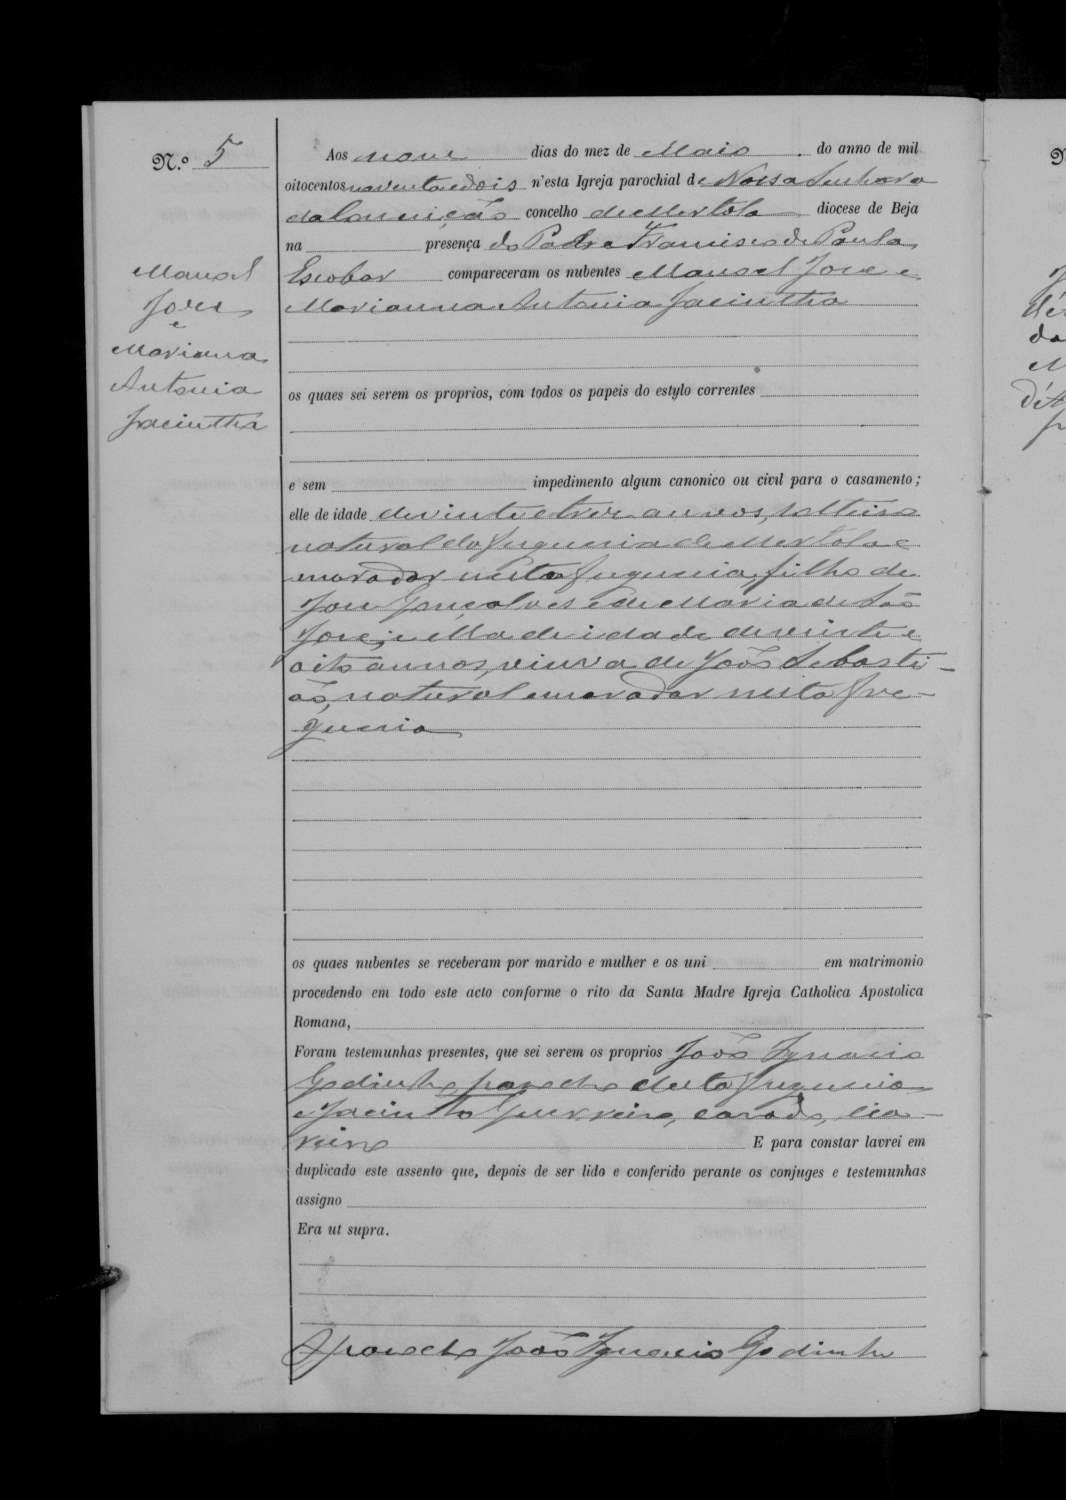 N.º 5
Aos nove dias do mez de Maio do anno de mil
oitocentos noventa e dois n'esta Igreja parochial de Nossa Senhora
da Conceição concelho de Mertola diocese de Beja
na presença do Padre Francisco de Paula
Escobar compareceram os nubentes Manoel Jose e
Marianna Antonia Jacintha
Manoel
Jose
e
Mariana
Antonia
Jacintha
os quaes sei serem os proprios, com todos os papeis do estylo correntes
e sem impedimento algum canonico ou civil para o casamento;
elle de idade de vinte e tres annos, solteiro
natural da freguesia de Mertola e
morador nesta freguesia, filho de
Jose Gonçalves e de Maria de São
Jose; e ella de idade de vinte e
oito annos, viuva de João Sebasti-
ão, natural e morador nesta fre-
guesia
os quaes nubentes se receberam por marido e mulher e os uni em matrimonio
procedendo em todo este acto conforme o rito da Santa Madre Igreja Catholica Apostolica
Romana,
Foram testemunhas presentes, que sei serem os proprios João Ignacio
Godinho, parocho desta freguesia
e Jacintho Guerreiro, casado,
E para constar lavrei em
duplicado este assento que, depois de ser lido e conferido perante os conjuges e testemunhas
assigno
Era ut supra.
O parocho João Ignacio Godinho